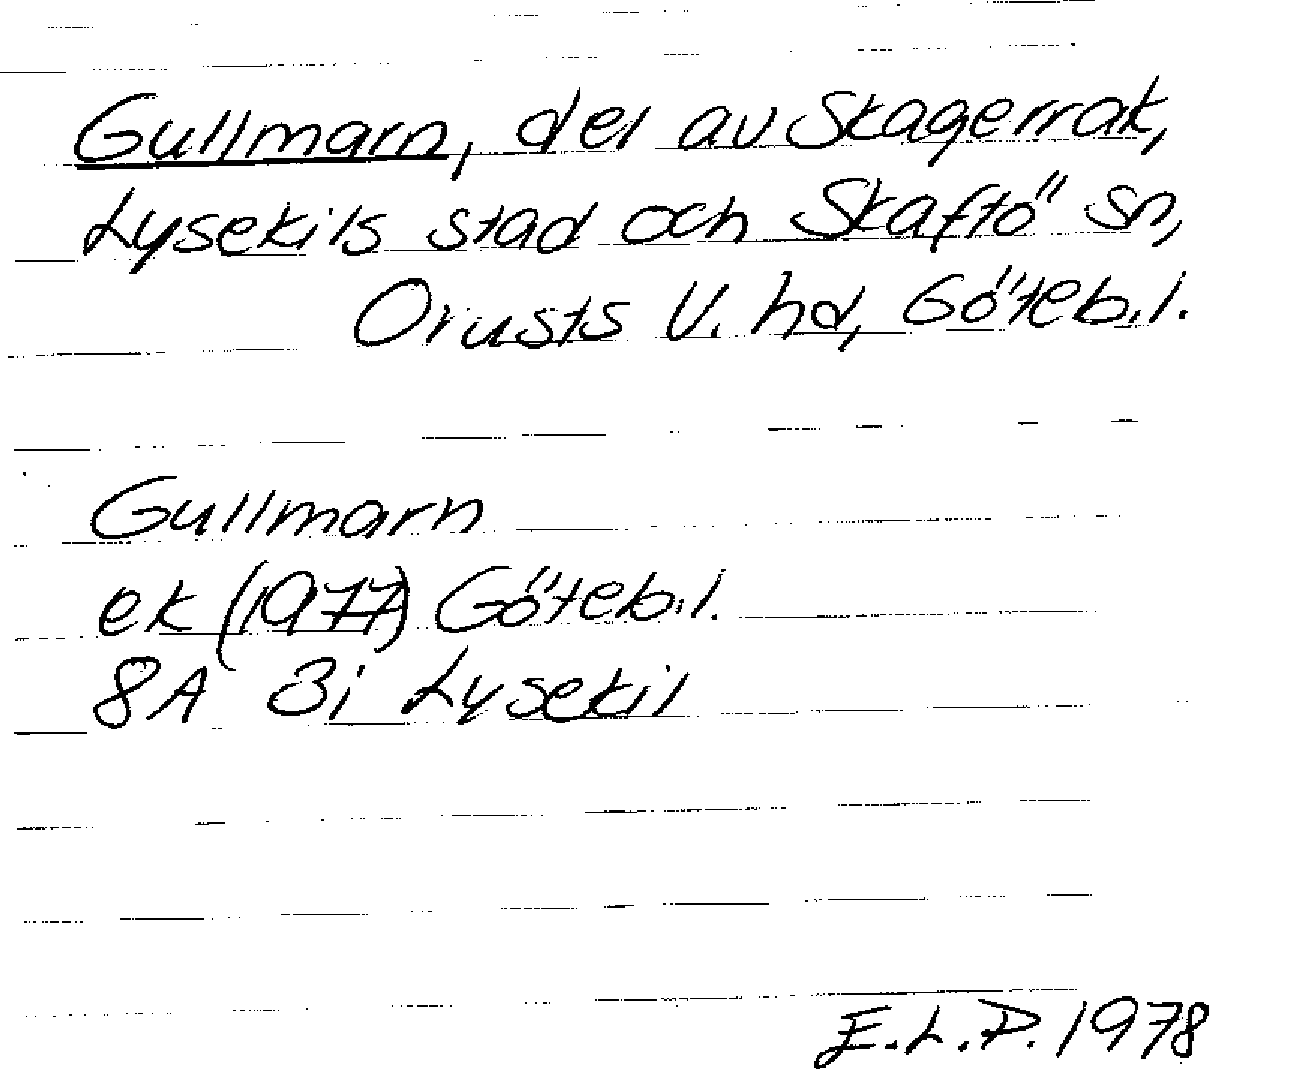 Gullmarn, del av Skagerrak,
Lysekils stad och Skaftö sn,
Orusts V. hd, Göteb.l.
Gullmarn
ek (1977) Göteb.l.
8A 3i Lysekil
E.L.P. 1978